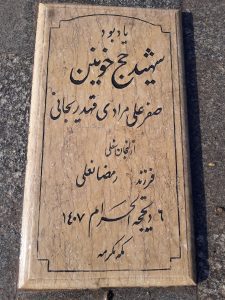 یادبود
شهید حج خونین
صفر علی مرادی قهدریجانی
از لنجان سفلی
فرزند رمضانعلی
۶ ذیحجة الحرام ۱۴۰۷
مکه مکرمه